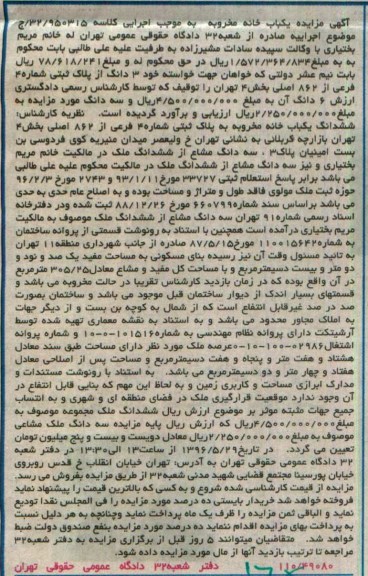 آگهی مزایده یکباب خانه مخروبه به موجب اجرایی کلاسه ۳۲/۹۵۰۳۱۵/ج
موضوع اجراییه صادره از شعبه۳۲ دادگاه حقوقی عمومی تهران له خانم مریم
بختیاری با وکالت سپیده سادات مشیرزاده به طرفیت علیه علی طالبی بابت محکوم
به به مبلغ۱/۵۷۲/۳۶۴/۸۳۴ریال در حق محکوم له و مبلغ۷۸/۶۱۸/۲۴۱ ریال
بابت نیم عشر دولتی که خواهان جهت خواسته خود ۳ دانگ از پلاک ثبتی شماره۴
فرعی از ۸۶۲ اصلی بخش۴ تهران را توقیف که توسط کارشناس رسمی دادگستری
ارزش ۶ دانگ آن به مبلغ ۴/۵۰۰/۰۰۰/۰۰۰ریال و سه دانگ مورد مزایده به
مبلغ۲/۲۵۰/۰۰۰/۰۰۰ریال ارزیابی و برآورد گردیده است. نظریه کارشناس:
ششدانگ یکباب خانه مخروبه به پلاک ثبتی شماره۴ فرعی از ۸۶۲ اصلی بخش۴
تهران بازارچه قربلانی به نشانی تهران خ ولیعصر میدان منیریه کوی فردوسی بن
بست امینیان پلاک۳ ، سه دانگ مشاع از ششدانگ ملک در مالکیت خانم مریم
بختیاری و نیز سه دانگ مشاع از ششدانگ ملک در مالکیت محکوم علیه علی طالبی
می باشد برابر پاسخ استعلام ثبتی ۳۳۷۲۷ مورخ ۹۳/۱۱/۱ و ۲۷۴۳ مورخ ۹۶/۲/۳
حوزه ثبت ملک مولوی فاقد طول و متراژ و مساحت بوده و به اصلاح عام حدی به حدی
می باشد براساس سند شماره۶۶۰۷۹۹ مورخ ۸۸/۱۲/۲۶ ثبت شده ودر دفترخانه
اسناد رسمی شماره۹۱ تهران سه دانگ مشاع از ششدانگ ملک موصوف به مالکیت
مریم بختیاری درآمده است همچنین با استناد به رونوشت قسمتی از پروانه ساختمان
به شماره۱۱۰۰۱۵۶۴۲ مورخ۸۷/۵/۱۵ صادره از جانب شهرداری منطقه۱۱ تهران
به تائید مسئول وقت آن نیز رسیده بنای مسکونی به مساحت مفید یک صد و نود و
دو متر و بیست دسیمترمربع و با مساحت کل مفید و مشاع معادل۳۰۵/۲۵ مترمربع
در آن واقع بوده که در زمان بازدید کارشناس تقریبا در حالت مخروبه می باشد و
قسمتهای بسیار اندک از دیوار ساختمان قبل موجود می باشد و ساختمان بصورت
صد در صد غیرقابل انتفاع است که از شمال به کوچه بن بست و از دیگر جهات
به املاک مجاور محدود می باشد و به استناد به نقشه معماری تهیه شده توسط
آرشیتکت دارای پروانه نظام مهندسی به شماره۱۰۱۵۱۶-۰-۱۰ و شماره پروانه
اشتغال۰۲۹۸۶-۱۰۰-۱۰عرصه ملک مورد نظر دارای مساحت طبق سند معادل
هشتاد و هفت متر و پنجاه و هفت دسیمترمربع و مساحت پس از اصلاحی معادل
هفتاد و چهار متر و دو دسیمترمربع می باشد. به استناد با رونوشت مستندات و
مدارک ابرازی مساحت و کاربری زمین و به لحاظ این مهم که بنایی قابل انتفاع در
آن وجود ندارد موقعیت قرارگیری ملک در فضای منطقه ای و شهری و به انتساب
جمیع جهات مثبته موثر بر موضوع ارزش ریال ششدانگ ملک مجموعه موصوف به
مبلغ۴/۵۰۰/۰۰۰/۰۰۰ریال که ارزش ریال پایه مزایده سه دانگ ملک مشاعی
موصوف به مبلغ۲/۲۵۰/۰۰۰/۰۰۰ریال معادل دویست و بیست و پنج میلیون تومان
تعیین می گردد. در تاریخ۱۳۹۶/۵/۲۹ از ساعت۱۳ الی۱۳:۳۰ در دفتر شعبه
۳۲ دادگاه عمومی حقوقی تهران به آدرس: تهران خیابان انقلاب خ قدس روبروی
خیابان پورسینا مجتمع قضایی شهید مدنی شعبه۳۲ از طریق مزایده بفروش می رسد.
مزایده از قیمت کارشناسی شده شروع و به کسی که بالاترین قیمت را پیشنهاد نماید
فروخته خواهد شد خریدار بایستی ده درصد مورد مزایده را فی المجلس نقدا تودیع
نماید و الباقی ثمن مزایده را ظرف یک ماه پرداخت نماید وچنانچه به هر دلیل نسبت
به پرداخت بهای مزایده اقدام ننماید ده درصد مورد مزایده بنفع صندوق دولت ضبط
خواهد شد. متقاضیان میتوانند ۵ روز قبل از برگزاری مزایده به دفتر شعبه۳۲
مراجعه تا ترتیب بازدید آنها از مال مورد مزایده داده شود.
۱۱۰/۴۹۰۸۰ دفتر شعبه۳۲ دادگاه عمومی حقوقی تهران